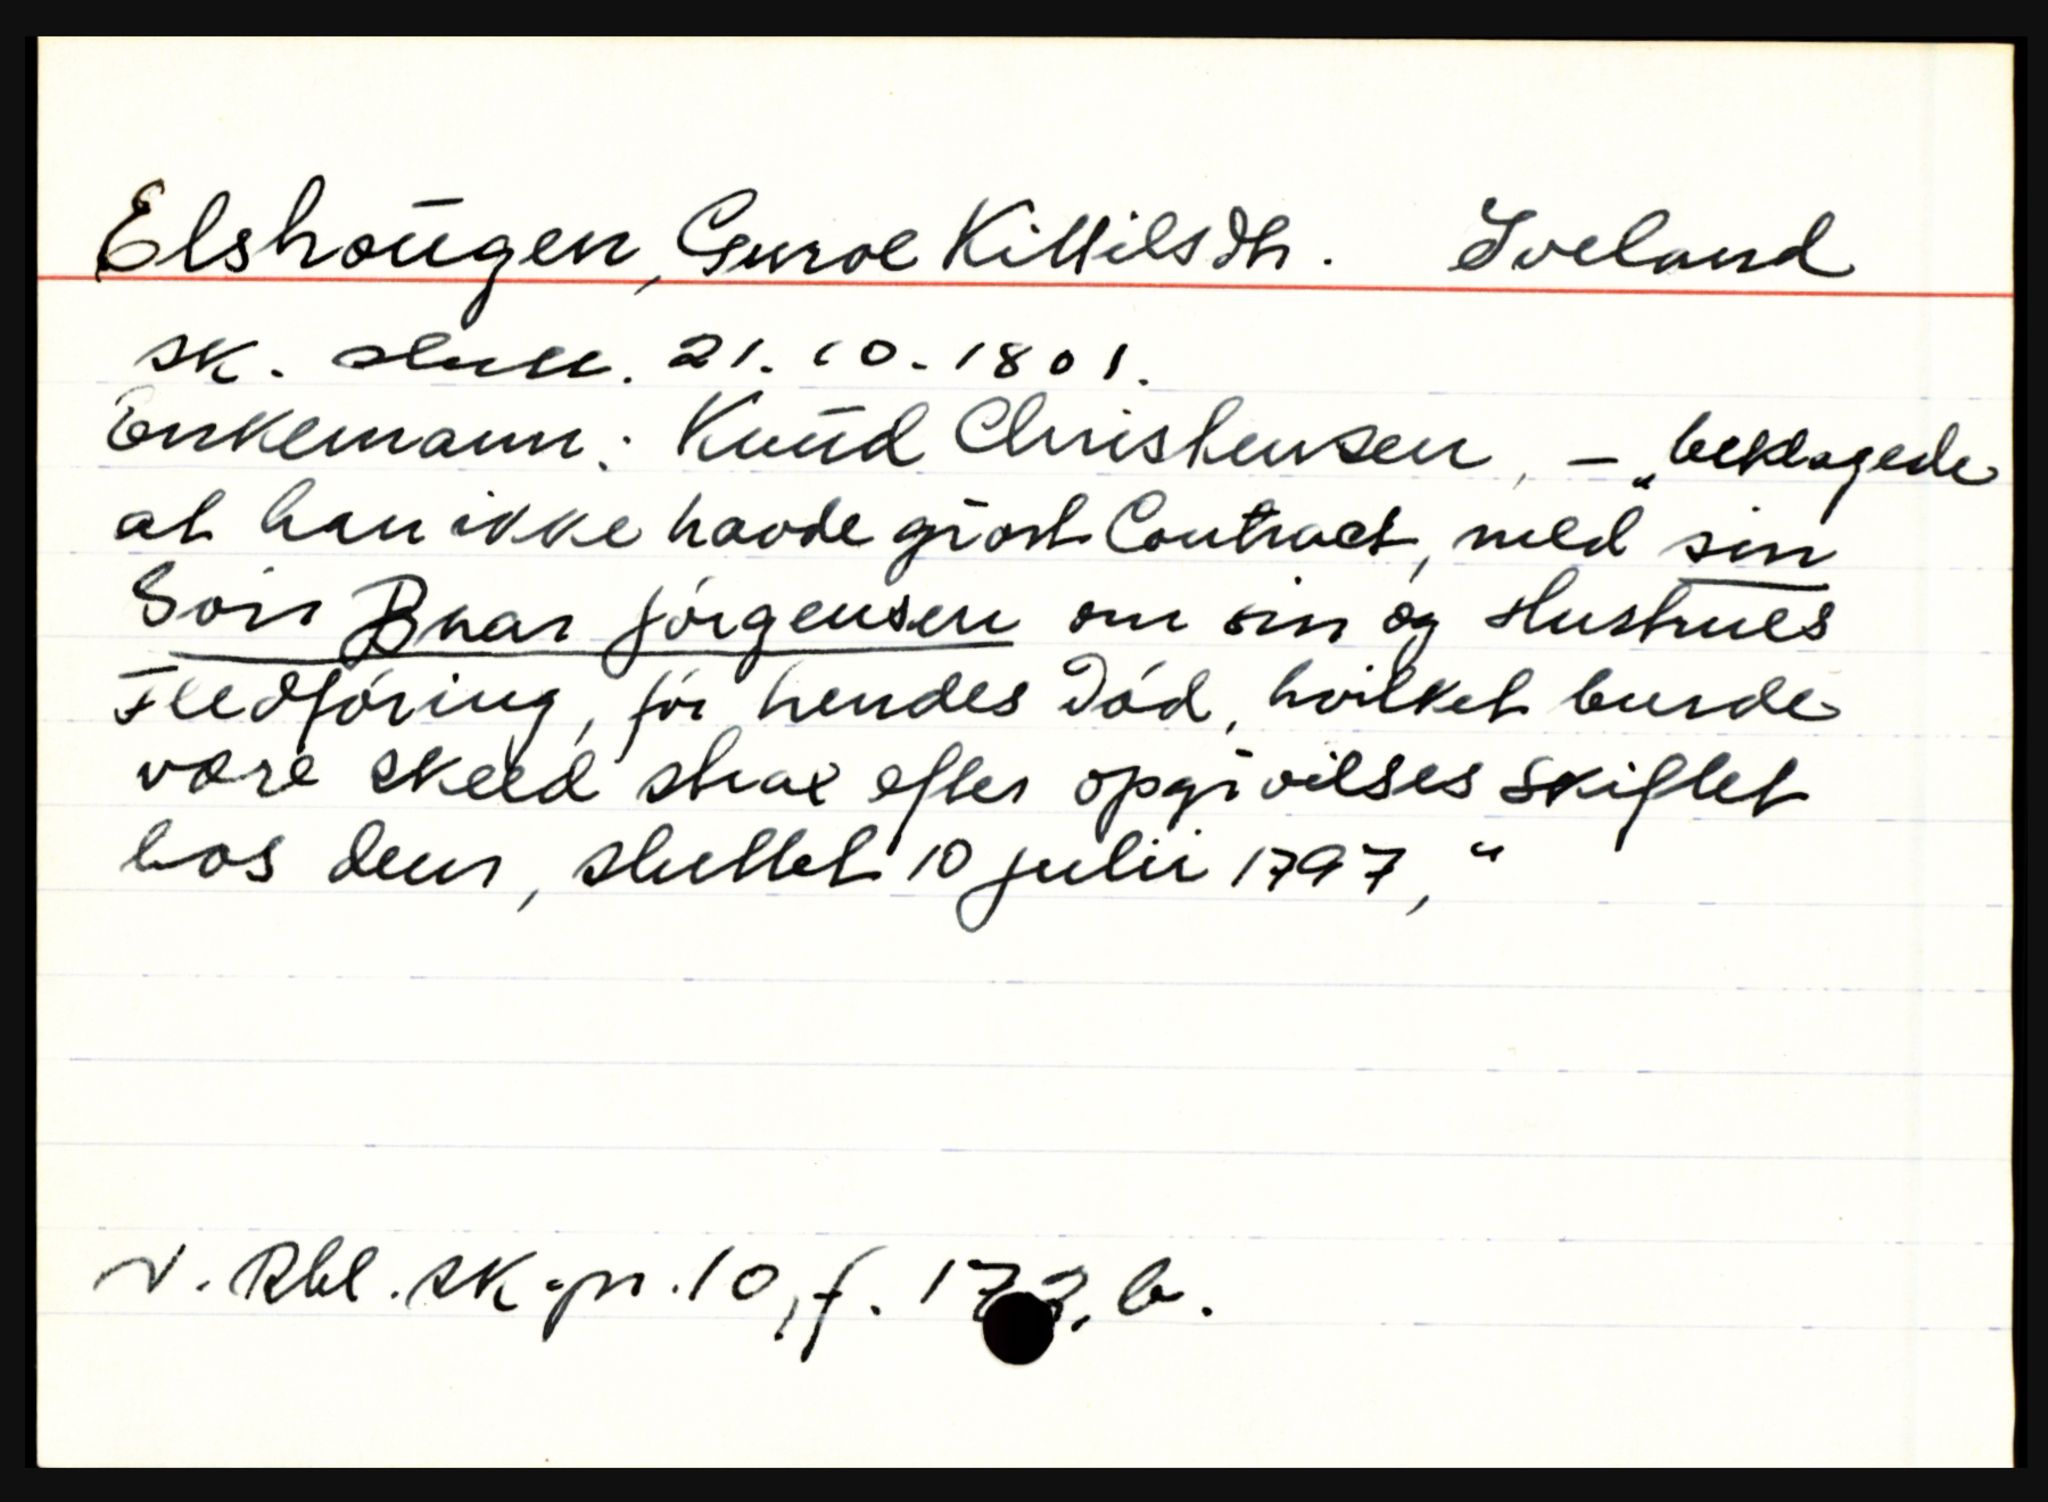 Elshoŭgen, Guroe Kittilsdtr. Iveland
sk. slutt. 21.10.1801.
Enkemann: Knŭd Christensen, – „beklagede
at han ikke havde giort Contract, med sin
Sön Bnar Jörgensen om sin og Hustrues
Fledföring, för hendes Död, hvilket burde
være skeed strax efter opgivilses skiftet
hos dem, sluttet 10 Julii 1797,“
N. Rbl. sk.pr. 10, f. b.